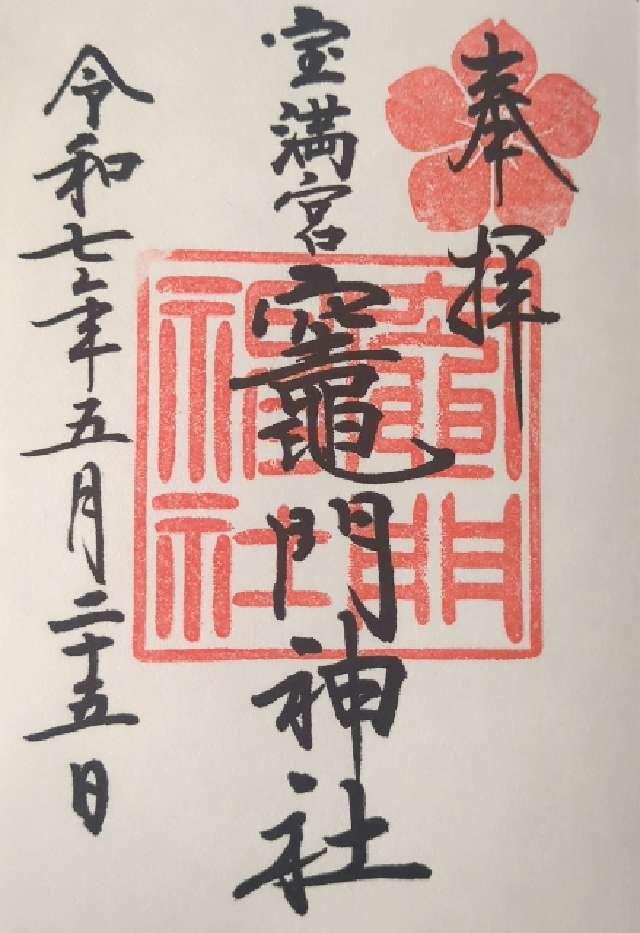 奉拝
宝満宮
竈門神社
竈門神社
令和七年五月二十五日